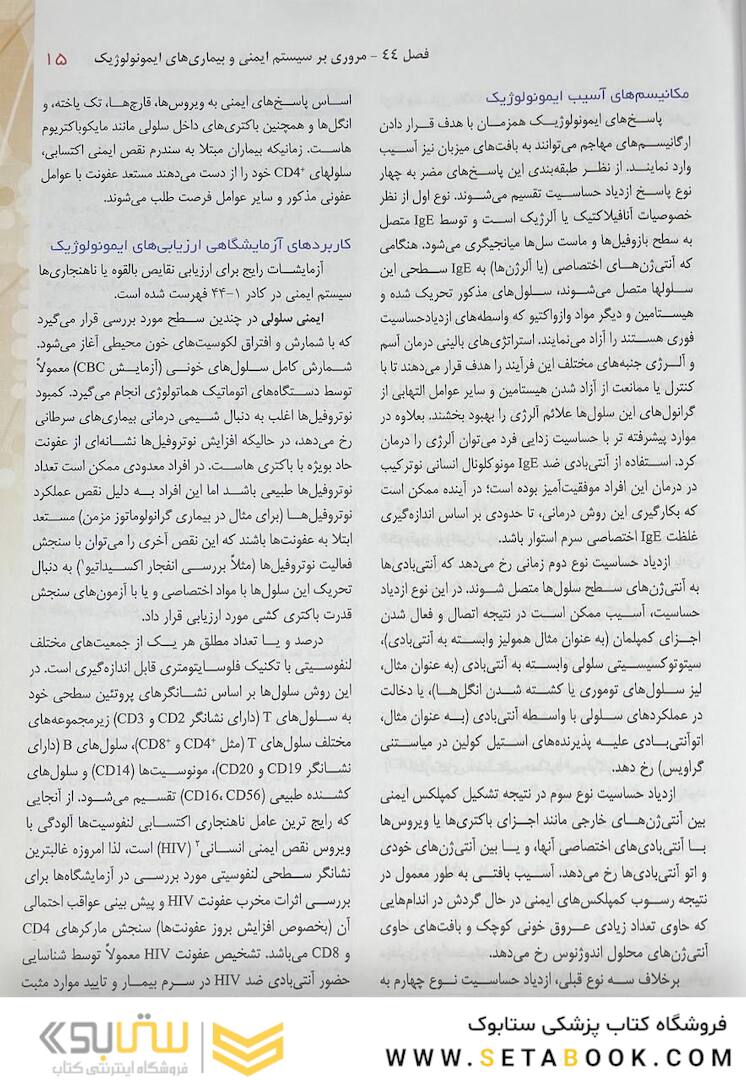 فصل ۴۴ - مروری بر سیستم ایمنی و بیماری‌های ایمونولوژیک ۱۵
مکانیسم‌های آسیب ایمونولوژیک
پاسـخ‌های ایمونولوژیـک همزمـان با هدف قـرار دادن
ارگانیسـم‌های مهاجم می‌توانند به بافت‌های میزبان نیز آسیب
وارد نماینـد. از نظـر طبقه‌بندی این پاسـخ‌های مضر به چهار
نوع پاسخ ازدیاد حساسیت تقسیم می‌شوند. نوع اول از نظر
خصوصیات آنافیلاکتیک یا آلرژیک است و توسط IgE متصل
به سطح بازوفیل‌ها و ماست سل‌ها میانجیگری می‌شود. هنگامی
که آنتی‌ژن‌هـای اختصاصی (یا آلرژن‌ها) به IgE سـطحی این
سـلولها متصل می‌شـوند، سـلول‌های مذکور تحریک شده و
هیسـتامین و دیگر مواد وازواکتیو که واسطه‌های ازدیادحساسیت
فوری هسـتند را آزاد می‌نمایند. استراتژی‌های بالینی درمان آسم
و آلـرژی جنبه‌های مختلف این فرآیند را هدف قرار می‌دهند تا با
کنترل یا ممانعت از آزاد شدن هیستامین و سایر عوامل التهابی از
گرانول‌های این سلول‌ها علائم آلرژی را بهبود بخشند. بعلاوه در
موارد پیشرفته تر با حساسیت زدایی فرد می‌توان آلرژی را درمان
کرد. استـفاده از آنتی‌بادی ضد IgE مونوکلونال انسانی نوترکیب
در درمان این افراد موفقیت‌آمیز بوده است؛ در آینده ممکن است
که بکارگیری این روش درمانی، تا حدودی بر اساس اندازه‌گیری
غلظت IgE اختصاصی سرم استوار باشد.
ازدیاد حساسیت نوع دوم زمانی رخ می‌دهد که آنتی‌بادی‌ها
به آنتی‌ژن‌های سطح سلول‌ها متصل شـوند. در این نوع ازدیاد
حساسیت، آسیب ممکن اسـت در نتیجه اتصال و فعال شدن
اجـزای کمپلمان (به عنوان مثال همولیز وابسته به آنتی‌بادی)،
سیتوتوکسیسیتی سلولی وابسته به آنتی‌بادی (به عنوان مثال،
لیز سـلول‌های توموری یا کشـته شـدن انگل‌هـا)، یا دخالت
در عملکردهای سـلولی با واسـطه آنتی‌بادی (بـه عنوان مثال،
اتوآنتی‌بـادی علیـه پذیرنده‌های اسـتیل کولین در میاسـتنی
گراویس) رخ دهد.
ازدیاد حساسیت نوع سوم در نتیجه تشکیل کمپلکس ایمنی
بین آنتی‌ژن‌هـای خارجی مانند اجزای باکتری‌ها یا ویروس‌ها
بـا آنتی‌بادی‌های اختصاصی آنها، و یـا بین آنتی‌ژن‌های خودی
و اتو آنتی‌بادی‌ها رخ می‌دهد. آسیب بافتـی به طور معمول در
نتیجه رسـوب کمپلکس‌های ایمنی در حال گردش در اندام‌هایی
که حاوی تعداد زیادی عـروق خونی کوچک و بافت‌های حاوی
آنتی‌ژن‌های محلول اندوژنوس رخ می‌دهد.
برخلاف سـه نوع قبلی، ازدیاد حساسیت نـوع چهارم به
اسـاس پاسـخ‌های ایمنی به ویروس‌ها، قارچ‌هـا، تک یاخته، و
انگل‌ها و همچنین باکتری‌های داخل سلولی مانند مایکوباکتریوم
هاسـت. زمانیکه بیماران مبتلا به سندرم نقص ایمنی اکتسابی،
سلولهای CD4+ خود را از دست می‌دهند مستعد عفونت با عوامل
عفونی مذکور و سایر عوامل فرصت طلب می‌شوند.
کاربردهای آزمایشگاهی ارزیابی‌های ایمونولوژیک
آزمایشـات رایج برای ارزیابی نقایص بالقوه یا ناهنجاری‌ها
سیستم ایمنی در کادر ۱-۴۴ فهرست شده است.
ایمنی سلولی در چندین سـطح مورد بررسی قرار می‌گیرد
که با شمارش و افتراق لکوسیت‌های خون محیطی آغاز می‌شود.
شـمارش کامل سـلول‌های خونـی (آزمایـش CBC) معمولاً
توسط دستگاه‌های اتوماتیک هماتولوژی انجام می‌گیرد. کمبود
نوتروفیل‌ها اغلب به دنبال شـیمی درمانی بیماری‌های سرطانی
رخ می‌دهد، در حالیکه افزایش نوتروفیل‌ها نشـانه‌ای از عفونت
حاد بویژه با باکتری هاست. در افراد معدودی ممکن است تعداد
نوتروفیل‌ها طبیعی باشـد اما این افراد بـه دلیل نقص عملکرد
نوتروفیل‌هـا (برای مثال در بیماری گرانولوماتوز مزمن) مسـتعد
ابتلا به عفونت‌ها باشند که این نقص آخری را می‌توان با سنجش
فعالیت نوتروفیل‌ها (مثلاً بررسـی انفجار اکسـیداتیو۱) به دنبال
تحریک این سلول‌ها با مواد اختصاصی و یا با آزمون‌های سنجش
قدرت باکتری کشی مورد ارزیابی قرار داد.
درصد و یـا تعداد مطلق هر یک از جمعیت‌های مختلف
لنفوسـیتی با تکنیک فلوسـایتومتری قابل اندازه‌گیری است. در
این روش سلول‌ها بر اساس نشانگرهای پروتئین سطحی خود
به سـلول‌های T (دارای نشانگر CD2 و CD3) زیرمجموعه‌های
مختلف سلول‌های T (مثل CD4+ و CD8+)، سلول‌های B (دارای
نشـانگر CD19 و CD20)، مونوسـیت‌ها (CD14) و سلول‌های
کشـنده طبیعی (CD16، CD56) تقسـیم می‌شـود. از آنجایی
که رایج ترین عامل ناهنجاری اکتسـابی لنفوسیت‌ها آلودگی با
ویروس نقص ایمنی انسانی۲ (HIV) است، لذا امروزه غالبترین
نشانگر سـطحی لنفوسیتی مورد بررسی در آزمایشگاه‌ها برای
بررسی اثرات مخرب عفونت HIV و پیش بینی عواقب احتمالی
آن (بخصوص افزایش بروز عفونت‌ها) سنجش مارکرهای CD4
و CD8 می‌باشـد. تشخیص عفونت HIV معمولاً توسط شناسایی
حضور آنتی‌بادی ضد HIV در سرم بیمـار و تایید موارد مثبت
فروشگاه کتاب پزشکی ستابوک
WWW.SETABOOK.COM
ستابوک
فروشگاه اینترنتی کتاب